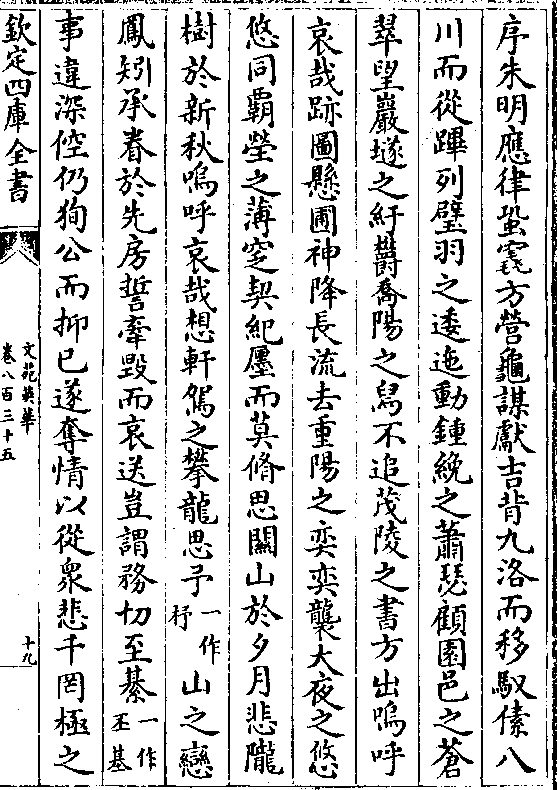 序朱明應律蜃䨥方營龜謀獻吉背九洛而移馭傃八
川而從蹕列璧羽之逶迤動鍾綍之蕭瑟顧園邑之蒼
翠望巖壝之紆欎喬陽之舄不追茂陵之書方出嗚呼
哀哉跡圖懸圃神降長流去重陽之奕奕襲大夜之悠
悠同覇塋之薄窆契紀㕓而莫脩思關山於夕月悲隴
樹於新秋嗚呼哀哉想軒駕之攀龍思予一作杼山之戀
鳳矧承眷於先房誓牽毀而哀送豈謂務切至綦一作丕基
事違深倥仍狥公而抑已遂奪情以從衆悲千罔極之
欽定四庫全書
文苑英華
卷八百三十五
十九